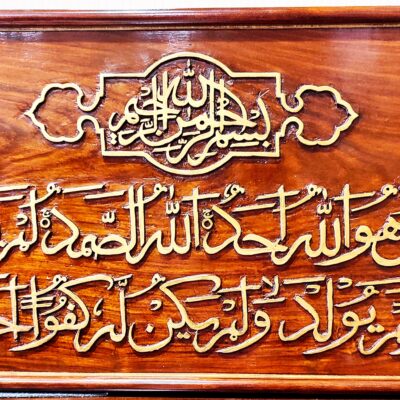 بسم الله الرحمن الرحيم
هُوَ اللهُ اَحَدٌ اللهُ الصَّمَدُ لَمْ
يُولَدْ وَلَمْ يَكُنْ لَّهٗ كُفُوًا